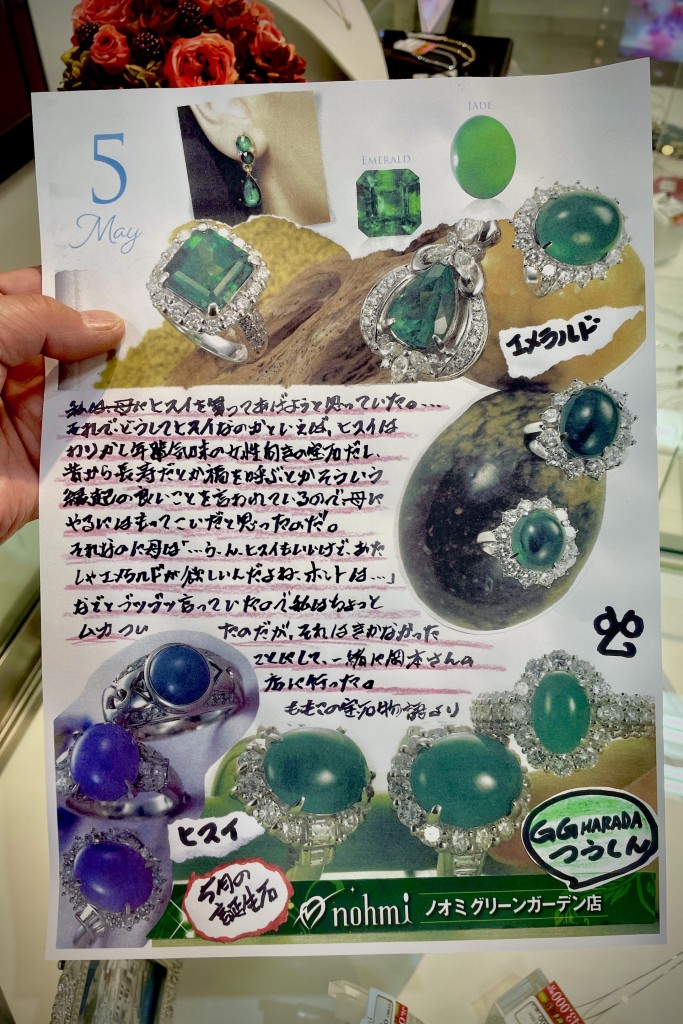 5
May
EMERALD
JADE
エメラルド
私は、母にヒスイを買ってあげようと思っていた。…
それでどうしてヒスイなのかといえば、ヒスイは
わりかし年輩気味の女性向きの宝石だし、
昔から長寿だとか福を呼ぶとかそういう
縁起の良いことを言われているので、母に
やるにはもってこいだと思ったのだ。
それなのに母は「…う、ん、ヒスイもいいけど、あた
しゃエメラルドが欲しいんだよね、ホントは…」
などとブツブツ言っていたので私はちょっと
ムカつい たのだが、それはきかなかった
ことにして、一緒に岡本さんの
店に行った。
ももこの宝石物語より
ヒスイ
5月の
誕生石
GG HARADA
つうしん
nohmi ノオミ グリーンガーデン店